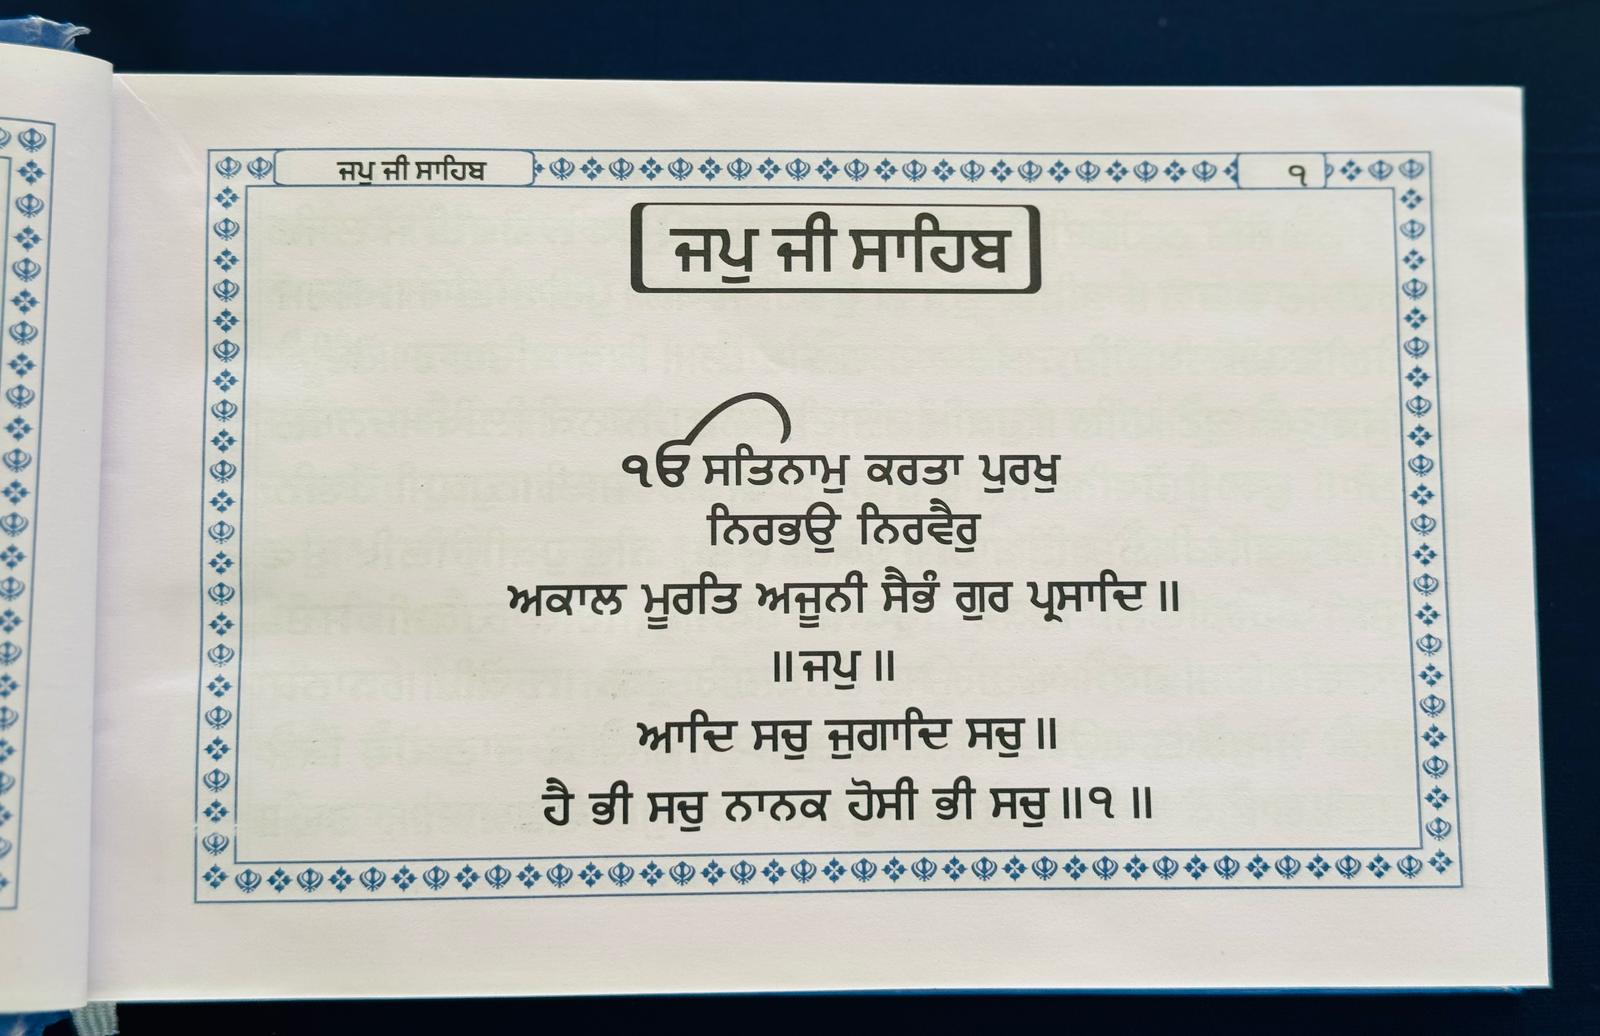 ਜਪੁ ਜੀ ਸਾਹਿਬ
੧
ਜਪੁ ਜੀ ਸਾਹਿਬ
ੴ ਸਤਿਨਾਮੁ ਕਰਤਾ ਪੁਰਖੁ
ਨਿਰਭਉ ਨਿਰਵੈਰੁ
ਅਕਾਲ ਮੂਰਤਿ ਅਜੂਨੀ ਸੈਭੰ ਗੁਰ ਪ੍ਰਸਾਦਿ॥
॥ਜਪੁ॥
ਆਦਿ ਸਚੁ ਜੁਗਾਦਿ ਸਚੁ॥
ਹੈ ਭੀ ਸਚੁ ਨਾਨਕ ਹੋਸੀ ਭੀ ਸਚੁ॥੧॥